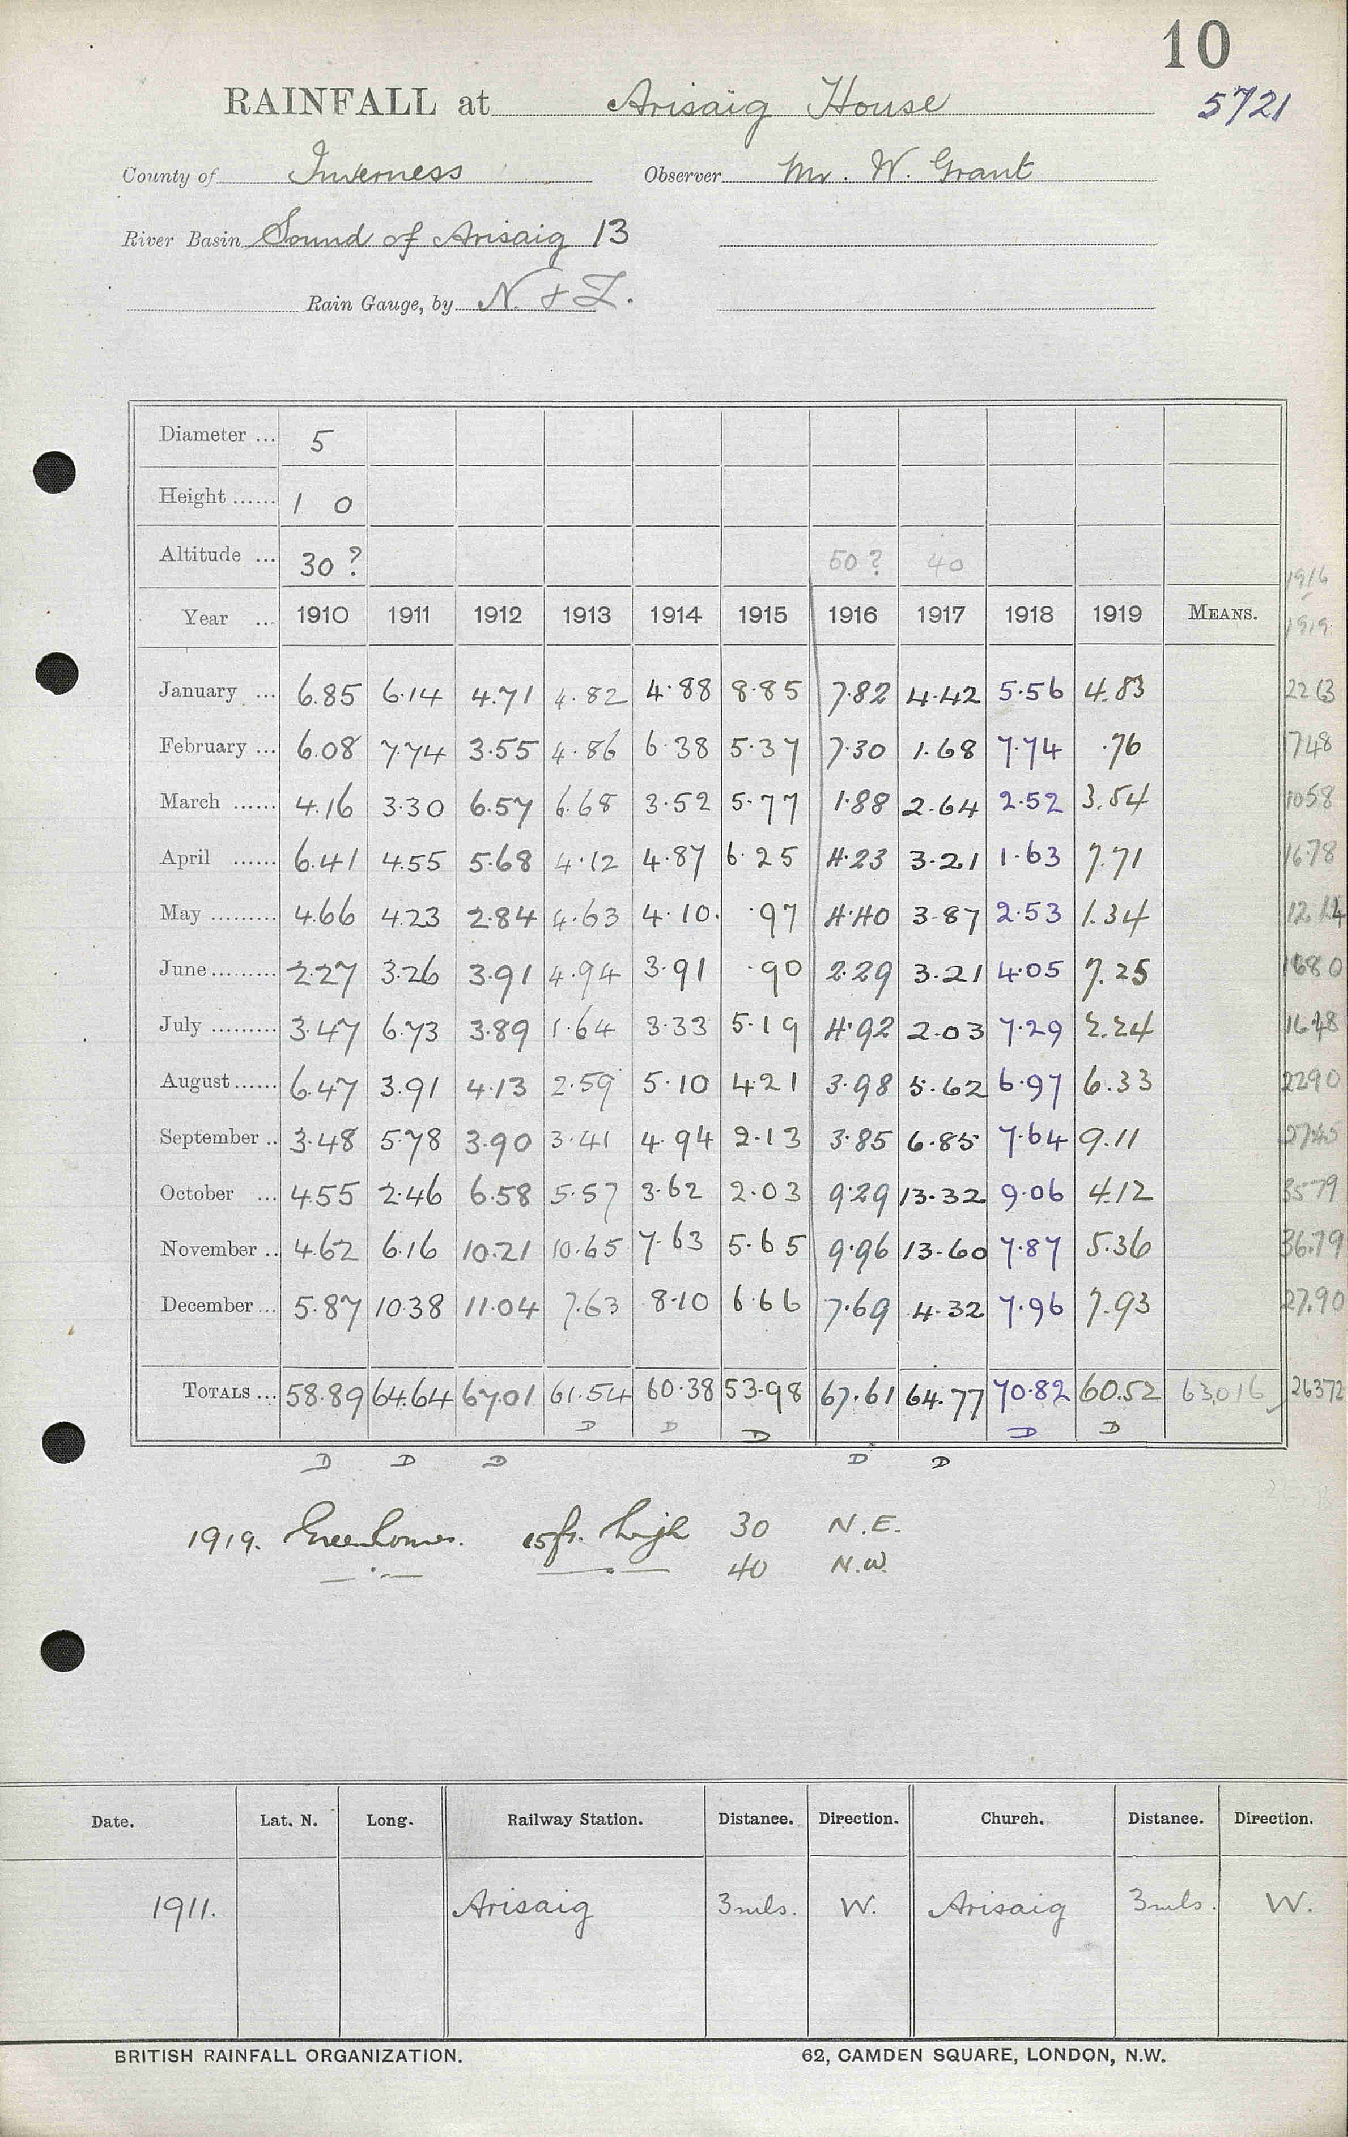 10
RAINFALL at Arisaig House 5721
County of Inverness Observer Mr. W. Grant
River Basin Sound of Arisaig 13
Rain Gauge, by N. & Z.
Diameter ... 5
Height ...... 1 0
Altitude ... 30 ? 50 ? 40
1916
Year ... 1910 1911 1912 1913 1914 1915 1916 1917 1918 1919 MEANS. 1919
January ... 6.85 6.14 4.71 4.82 4.88 8.85 7.82 4.42 5.56 4.83 2263
February ... 6.08 7.74 3.55 4.86 6.38 5.37 7.30 1.68 7.74 .76 1748
March ...... 4.16 3.30 6.57 6.68 3.52 5.77 1.88 2.64 2.52 3.54 1058
April ...... 6.41 4.55 5.68 4.12 4.87 6.25 4.23 3.21 1.63 7.71 1678
May ......... 4.66 4.23 2.84 4.63 4.10. .97 4.40 3.87 2.53 1.34 1214
June ......... 2.27 3.26 3.91 4.94 3.91 .90 2.29 3.21 4.05 7.25 1680
July ......... 3.47 6.73 3.89 1.64 3.33 5.19 4.92 2.03 7.29 2.24 1648
August ...... 6.47 3.91 4.13 2.59 5.10 4.21 3.98 5.62 6.97 6.33 2290
September .. 3.48 5.78 3.90 3.41 4.94 2.13 3.85 6.85 7.64 9.11 2745
October ... 4.55 2.46 6.58 5.57 3.62 2.03 9.29 13.32 9.06 4.12 3579
November .. 4.62 6.16 10.21 10.65 7.63 5.65 9.96 13.60 7.87 5.36 36.79
December ... 5.87 10.38 11.04 7.63 8.10 6.66 7.69 4.32 7.96 7.93 27.90
TOTALS ... 58.89 64.64 67.01 61.54 60.38 53.98 67.61 64.77 70.82 60.52 63.016 26372
D D D D D
D D D D D
1919. Greenhouses. 15 ft. high 30 N.E.
40 N.W.
Date. Lat. N. Long. Railway Station. Distance. Direction. Church. Distance. Direction.
1911. Arisaig 3 mls. W. Arisaig 3 mls. W.
BRITISH RAINFALL ORGANIZATION. 62, CAMDEN SQUARE, LONDON, N.W.